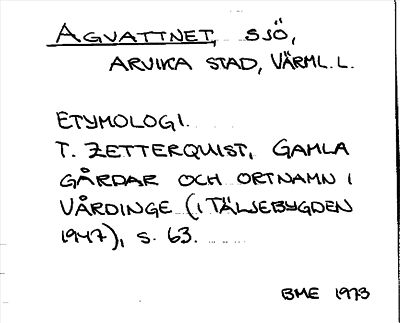 AGVATTNET, SJÖ,
ARVIKA STAD, VÄRML. L.
ETYMOLOGI.
T. ZETTERQUIST, GAMLA
GÅRDAR OCH ORTNAMN I
VÅRDINGE (I TÄLJEBYGDEN
1947), S. 63.
BME 1973